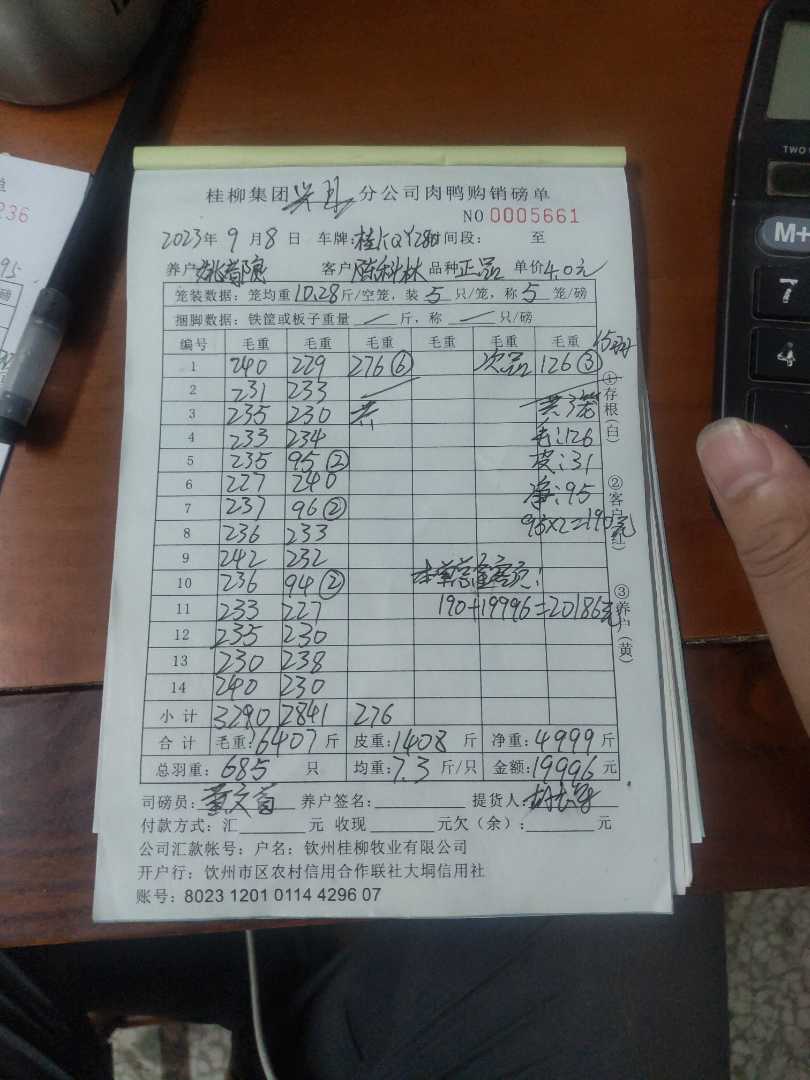 桂柳集团 分公司肉鸭购销磅单
NO 0005661
2023年 9月 8日 车牌: 时间段: 至
养户 客户 陈科林 品种 正品 单价 4.0元
笼装数据: 笼均重 10.28 斤/空笼, 装 5 只/笼, 称 5 笼/磅
捆脚数据: 铁筐或板子重量 / 斤, 称 / 只/磅
编号 毛重 毛重 毛重 毛重 毛重 毛重
1 240 229 276⑥ 次品 126③
2 231 233
3 235 230 共3笼
4 233 234 毛:126
5 235 95② 皮:31
6 227 240 净:95
7 237 96②
95×2=190元
8 236 233
9 242 232
10 236 94②
11 233 227 190+19996=20186元
12 235 230
13 230 238
14 240 230
小计 3290 2841 276
合计 毛重:6407斤 皮重:1408斤 净重:4999斤
总羽重: 685 只 均重:7.3斤/只 金额:19996元
司磅员: 养户签名: 提货人:
付款方式: 汇 元 收现 元欠(余): 元
公司汇款帐号: 户名: 钦州桂柳牧业有限公司
开户行: 钦州市区农村信用合作联社大垌信用社
账号: 8023 1201 0114 4296 07
①存根(白)
②客户(红)
③养户(黄)
单
236
95
TWO
M+
7
4